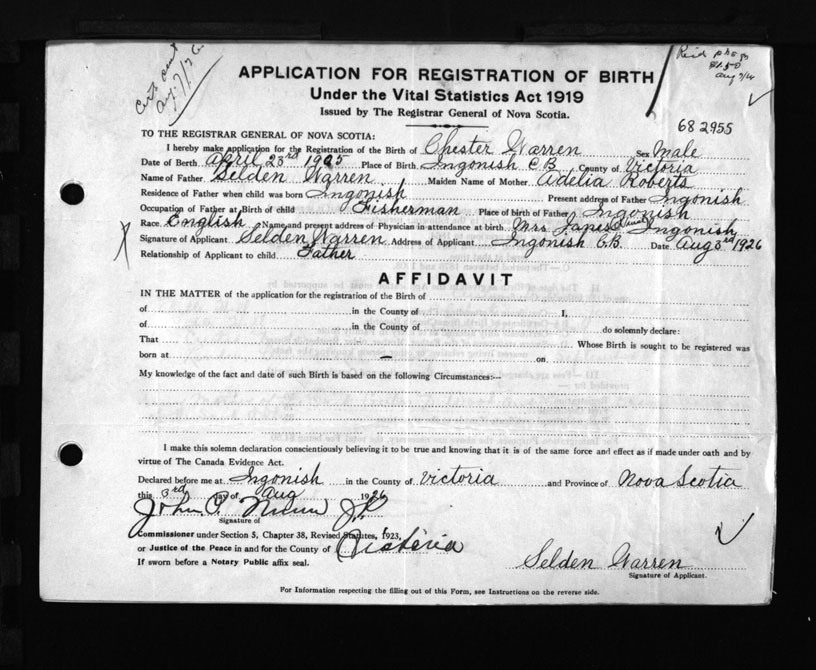 Cert sent
Aug. 7/26
APPLICATION FOR REGISTRATION OF BIRTH
Under the Vital Statistics Act 1919
Issued by The Registrar General of Nova Scotia.
$1.50
Aug 7/26
682955
TO THE REGISTRAR GENERAL OF NOVA SCOTIA:
I hereby make application for the Registration of the Birth of Chester Warren Sex Male
Date of Birth April 23rd 1925 Place of Birth Ingonish C B County of Victoria
Name of Father Selden Warren Maiden Name of Mother Adelia Roberts
Residence of Father when child was born Ingonish Present address of Father Ingonish
Occupation of Father at Birth of child Fisherman Place of birth of Father Ingonish
Race English Name and present address of Physician in attendance at birth Mrs Ingonish
Signature of Applicant Selden Warren Address of Applicant Ingonish C.B. Date Aug 3rd 1926
Relationship of Applicant to child Father
AFFIDAVIT
IN THE MATTER of the application for the registration of the Birth of
of in the County of I,
of in the County of do solemnly declare:
That Whose Birth is sought to be registered was
born at — on
My knowledge of the fact and date of such Birth is based on the following Circumstances:--
I make this solemn declaration conscientiously believing it to be true and knowing that it is of the same force and effect as if made under oath and by
virtue of The Canada Evidence Act.
Declared before me at Ingonish in the County of Victoria and Province of Nova Scotia
this 3rd day of Aug 1926
John J.P.
Signature of
Commissioner under Section 5, Chapter 38, Revised Statutes, 1923,
or Justice of the Peace in and for the County of Victoria
If sworn before a Notary Public affix seal.
Selden Warren
Signature of Applicant.
For Information respecting the filling out of this Form, see Instructions on the reverse side.